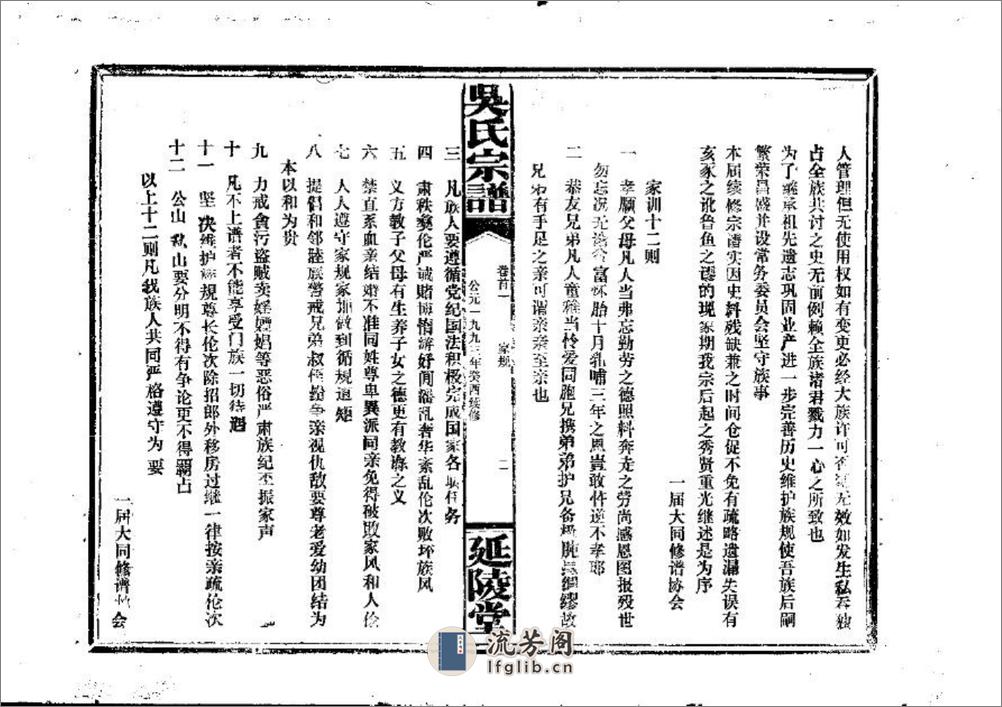 人管理但无使用权如有变更必经大族许可否无效如发生私吞独
占全族共讨之史无前例赖全族诸君戮力一心之所致也
为了乘承祖先遗志巩固业产进一步完善历史维护族规使吾族后嗣
繁荣昌盛并设常务委员会坚守族事
本届续修宗谱实因史料残缺兼之时间仓促不免有疏略遗漏失误有
亥豕之讹鲁鱼之谬的现象期我宗后起之秀贤重光继述是为序
一届大同修谱协会
家训十二则
一 孝顺父母凡人当弗忘勤劳之德照料奔走之劳尚感恩图报殁世
勿忘况无论贫富怀胎十月乳哺三年之恩岂敢忤逆不孝耶
二 恭友兄弟凡人童稚当怜爱同胞兄携弟弟护兄备极绸缪故
兄弟有手足之亲可谓亲亲至宗也
吳氏宗譜
卷首一 家规 二
公元一九九三年癸酉续修
延陵堂
三 凡族人要遵循党纪国法积极完成国家各项任务
四 肃秩彝伦严诫赌博惰游奸闹淫乱奢华紊乱伦次败坏族风
五 义方教子父母有生养子女之德更有教诲之义
六 禁直系血亲结婚不准同姓尊卑異派同亲免得破败家风和人伦
七 人人遵守家规家训做到循规道矩
八 提倡和邻睦族警戒兄弟叔侄纷争亲视仇敌要尊老爱幼团结为
本以和为贵
九 力戒貪污盗贼卖婬嫖娼等恶俗严肃族纪丕振家声
十 凡不上谱者不能享受门族一切待遇
十一 坚决维护族规尊长伦次除招郎外移房过继一律按亲疏伦次
十二 公山私山要分明不得有争论更不得霸占
以上十二则凡我族人共同严格遵守为要
一届大同修谱协会
流芳阁
lfglib.cn